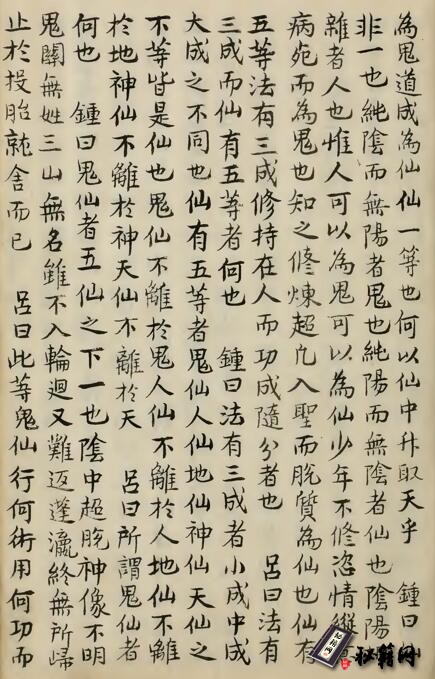 為鬼道成為仙仙一等也何以仙中升取天乎　鍾曰
非一也純陰而無陽者鬼也純陽而無陰者仙也陰陽
雜者人也惟人可以為鬼可以為仙少年不修恣情縱
病死而為鬼也知之修煉超凡入聖而脫質為仙也仙有
五等法有三成修持在人而功成隨分者也　呂曰法有
三成而仙有五等者何也　鍾曰法有三成者小成中成
大成之不同也仙有五等者鬼仙人仙地仙神仙天仙之
不等皆是仙也鬼仙不離於鬼人仙不離於人地仙不離
於地神仙不離於神天仙不離於天　呂曰所謂鬼仙者
何也　鍾曰鬼仙者五仙之下一也陰中超脫神像不明
鬼關無姓三山無名雖不入輪迴又難返蓬瀛終無所歸
止於投胎就舍而已　呂曰此等鬼仙行何術用何功而
秘籍网